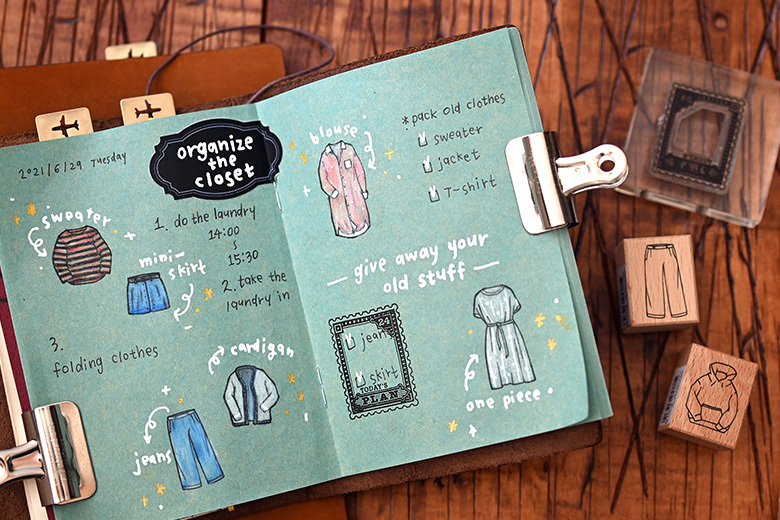 2021/6/29 Tuesday
organize
the
closet
sweater
1. do the laundry
14:00
15:30
mini-
skirt
2. take the
laundry in
3.
folding clothes
cardigan
jeans
blouse
*pack old clothes
sweater
jacket
T-shirt
— give away your
old stuff —
24
jeans
skirt
TODAY'S
PLAN
one piece